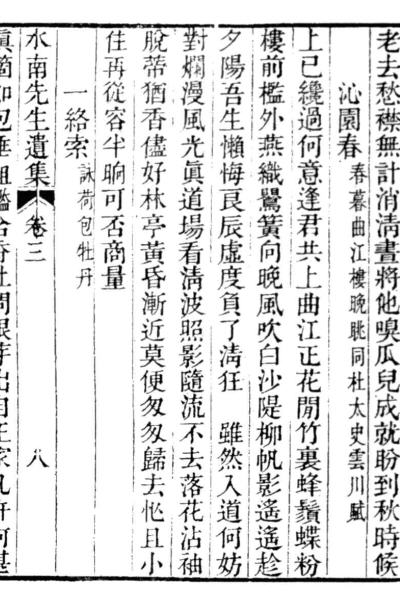 老去愁襟無計消淸晝將他嗅瓜兒成就盼到秋時候
沁園春 春暮曲江樓晩眺同杜太史雲川賦
上已纔過何意逢君共上曲江正花閒竹裏蜂鬚蝶粉
樓前檻外燕織鶯簧向晩風吹白沙隄柳帆影遙遙趁
夕陽吾生懶悔良辰虛度負了淸狂 雖然入道何妨
對爛漫風光眞道場看淸波照影隨流不去落花沾袖
脫蒂猶香儘好林亭黃昏漸近莫便匆匆歸去忙且小
住再從容半晌可否商量
一絡索 詠荷包牡丹
水南先生遺集 卷三 八